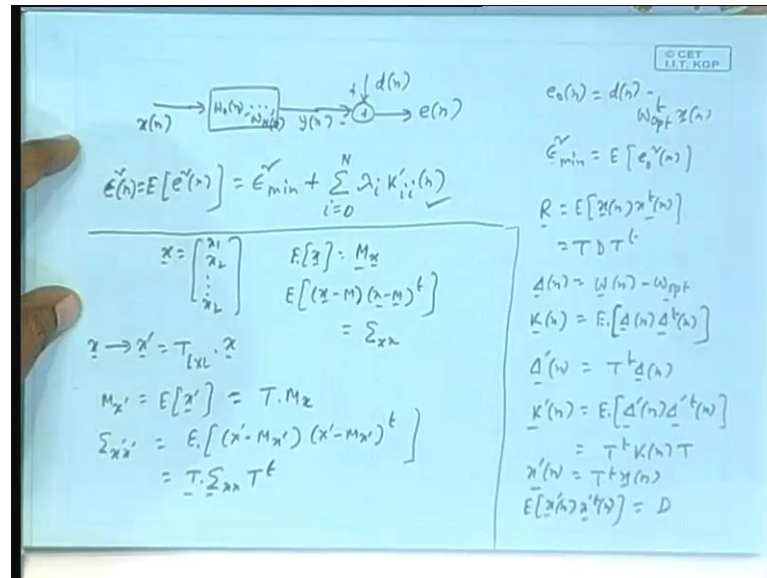 © CET
I.I.T. KGP
x(n) W₀(n), ..., W_N(n) y(n) - + d(n) + e(n)
ε²(n) = E[e²(n)] = ε²min + Σ_{i=0}^{N} λᵢ k'ᵢᵢ(n) ✓
x = [x₁ x₂ ⋮ x_L] E[x] = Mx
E[(x-M)(x-M)ᵗ]
= Σxx
x → x' = T_{L×L} · x
Mx' = E[x'] = T.Mx
Σx'x' = E.[(x'-Mx')(x'-Mx')ᵗ]
= T.Σxx Tᵗ
e₀(n) = d(n) -
wᵗopt x(n)
ε²min = E[e₀²(n)]
R = E[x(n)xᵗ(n)]
= T D Tᵗ
Δ(n) = w(n) - wopt
K(n) = E.[Δ(n)Δᵗ(n)]
Δ'(n) = TᵗΔ(n)
K'(n) = E.[Δ'(n)Δ'ᵗ(n)]
= Tᵗ K(n) T
x'(n) = Tᵗ x(n)
E[x'(n)x'ᵗ(n)] = D